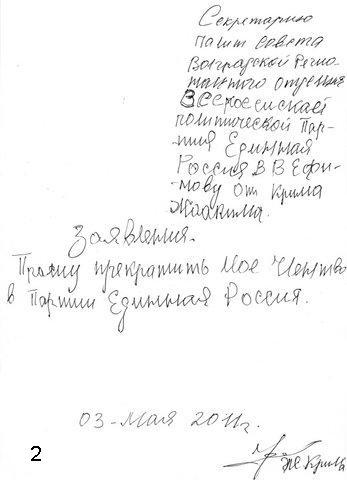 Секретарию
палит совета
Волградской Регио
нального отделение
ВСЕРОССИЙСКАЕЙ
политической Пар-
тия Единная
Россия В В Ефи-
мову от Крима
Жоакима.
Заявления.
Прошу прекратить Мое Членство
в Партии Единная Россия.
03-Мая 2011г.
2
Ж Крима